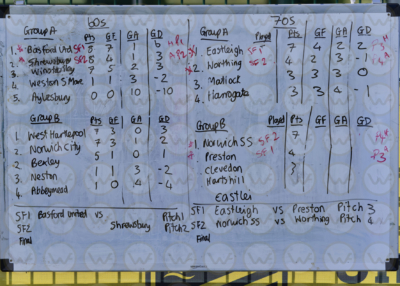 60s
Group A Pts GF GA GD
1. Basford Utd SF1 7 1 6
2. Shrewsbury SF2 8 4 1 3
3. Winnersley 7 5 2 3
4. Weston S Mare 1 1 3 -2
5. Aylesbury 0 0 10 -10
Group B Pts GF GA GD
1. West Hartlepool 7 3 0 3
2. Norwich City 7 3 1 2
Bexley 5 1 0 1
3. Neston 1 1 3 -2
4. Abbeymead 1 0 4 -4
SF1 Basford United vs Pitch 1
SF2 Shrewsbury Pitch 2
Final
70s
Group A Played Pts GF GA GD
1. Eastleigh SF1 7 4 2 2
2. Worthing SF2 4 2 3 -1
3. Matlock 3 3 3 0
4. Harrogate 3 3 4 -1
Group B Played Pts GF GA GD
Norwich SS SF2 7
Preston SF1 4
Clevedon 3
Hartshill
Eastlei
SF1 Eastleigh vs Preston Pitch 3
SF2 Norwich SS vs Worthing Pitch 4
Final